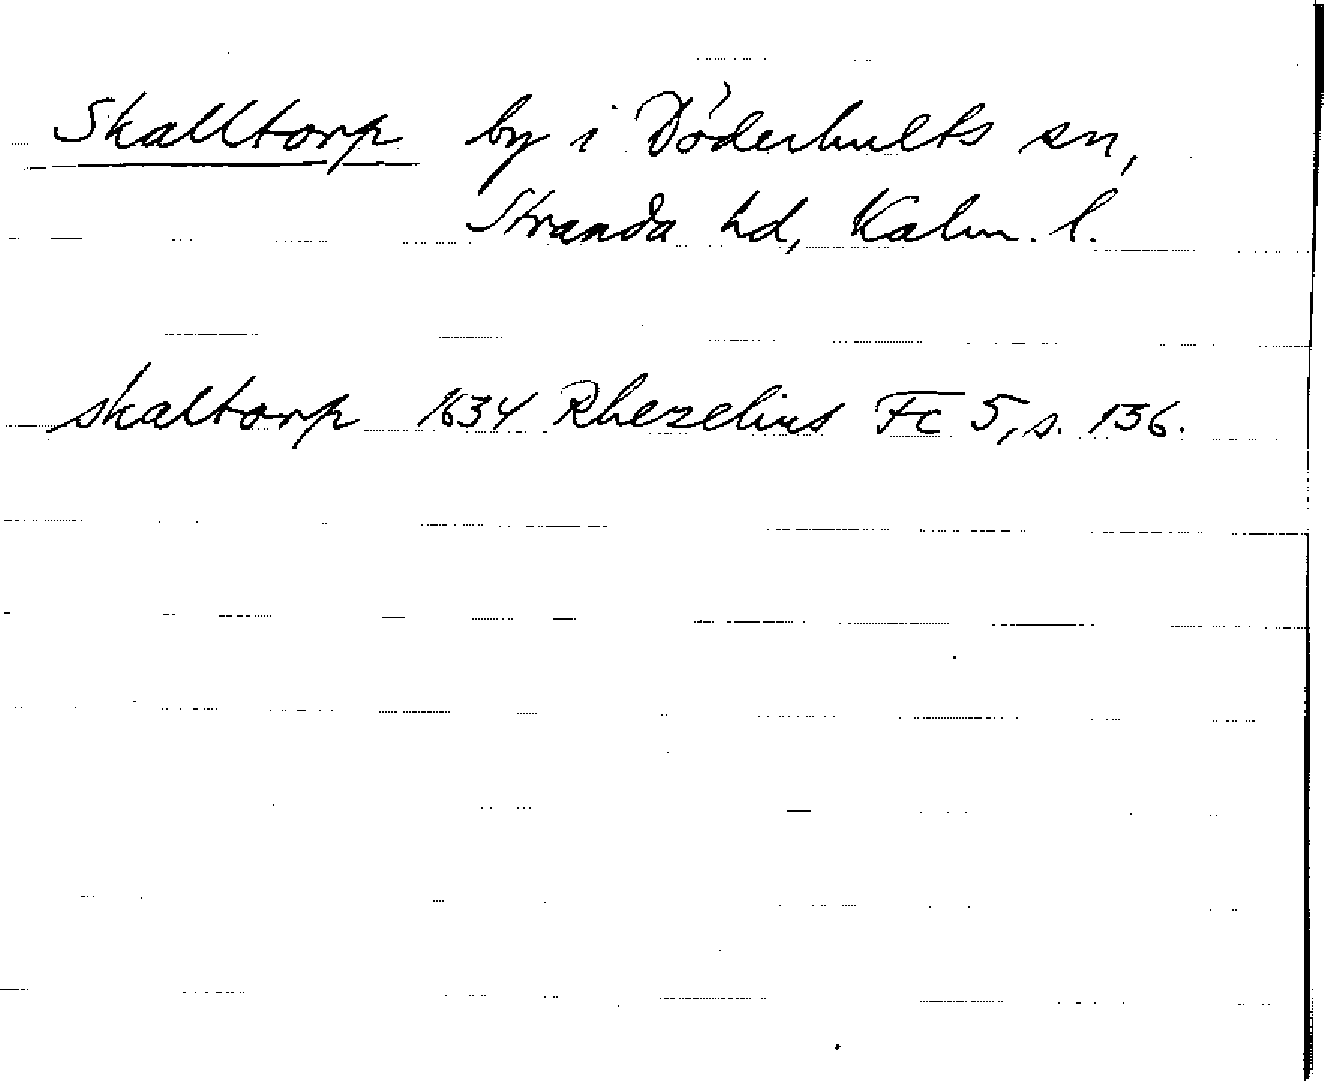 Skalltorp by i Döderhults sn,
Stranda hd, Kalm. l.
skaltorp 1634 Rhezelius Fc 5, s. 136.